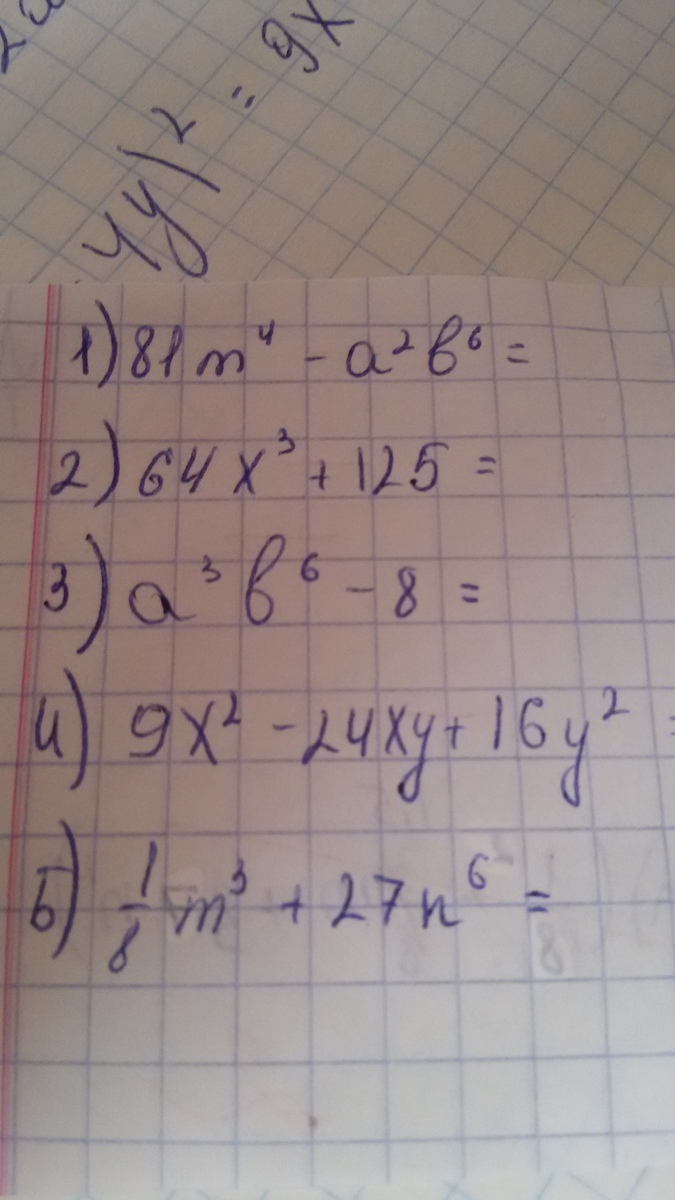 yy)² = 9x
1) 81m⁴ - a²b⁶ =
2) 64x³ + 125 =
3) a³b⁶ - 8 =
4) 9x² - 24xy + 16y² =
5) 1/8 m³ + 27n⁶ =